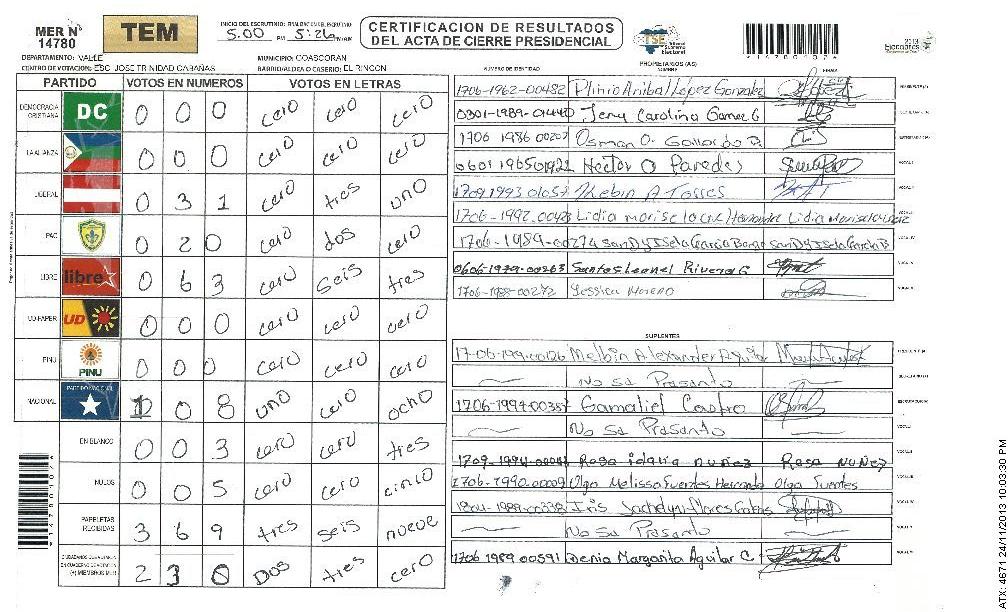 MER N° 14780
TEM
INICIO DEL ESCRUTINIO: FINALIZACION DEL ESCRUTINIO
5.00 PM 5:26
CERTIFICACION DE RESULTADOS
DEL ACTA DE CIERRE PRESIDENCIAL
TSE Tribunal Supremo Electoral
2013 Elecciones
DEPARTAMENTO: VALLE
MUNICIPIO: GOASCORAN
CENTRO DE VOTACION: ESC. JOSE TRINIDAD CABAÑAS
BARRIO/ALDEA O CASERIO: EL RINCON
NUMERO DE IDENTIDAD PROPIETARIOS (AS) NOMBRE FIRMA
PARTIDO VOTOS EN NUMEROS VOTOS EN LETRAS
DEMOCRACIA CRISTIANA DC 0 0 0 cero cero cero
LA ALIANZA 0 0 0 cero cero cero
LIBERAL 0 3 1 cero tres uno
PAC 0 2 0 cero dos cero
LIBRE libre 0 6 3 cero seis tres
UD-FAPER UD 0 0 0 cero cero cero
PINU PINU 0 0 0 cero cero cero
NACIONAL PARTIDO NACIONAL 1 0 8 uno cero ocho
EN BLANCO 0 0 3 cero cero tres
NULOS 0 0 5 cero cero cinco
PAPELETAS RECIBIDAS 3 6 9 tres seis nueve
(+) MIEMBROS MER 2 3 0 Dos tres cero
1706-1962-00482 Plinio Anibal Lopez Gonzalez
0301-1989-01440 Jeny Carolina Gomez G
1706 1986 00207 Osman O. Gallardo
0601 1965 01922 Hector O Paredes
1709 1993 01057 Kebin A Torres
1706-1992-00423 Lidia
1706-1989-00274
0606-1979-00263 Santos Leonel Rivera G
1706-1988-00272 Yessica Moreno
SUPLENTES
Melbin Alexander
No sa Prasanto
1706-1994-00357 Gamaliel Castro
No sa Prasanto
Rosa idalia nuñez Rosa Nuñez
1706-1990-00009 Olga Melissa Fuentes Olga Fuentes
Iris
No sa Prasanto
1706 1989 00591 Denia Margarita Aguilar C.
ATX: 4671 24/11/2013 10:03:30 PM